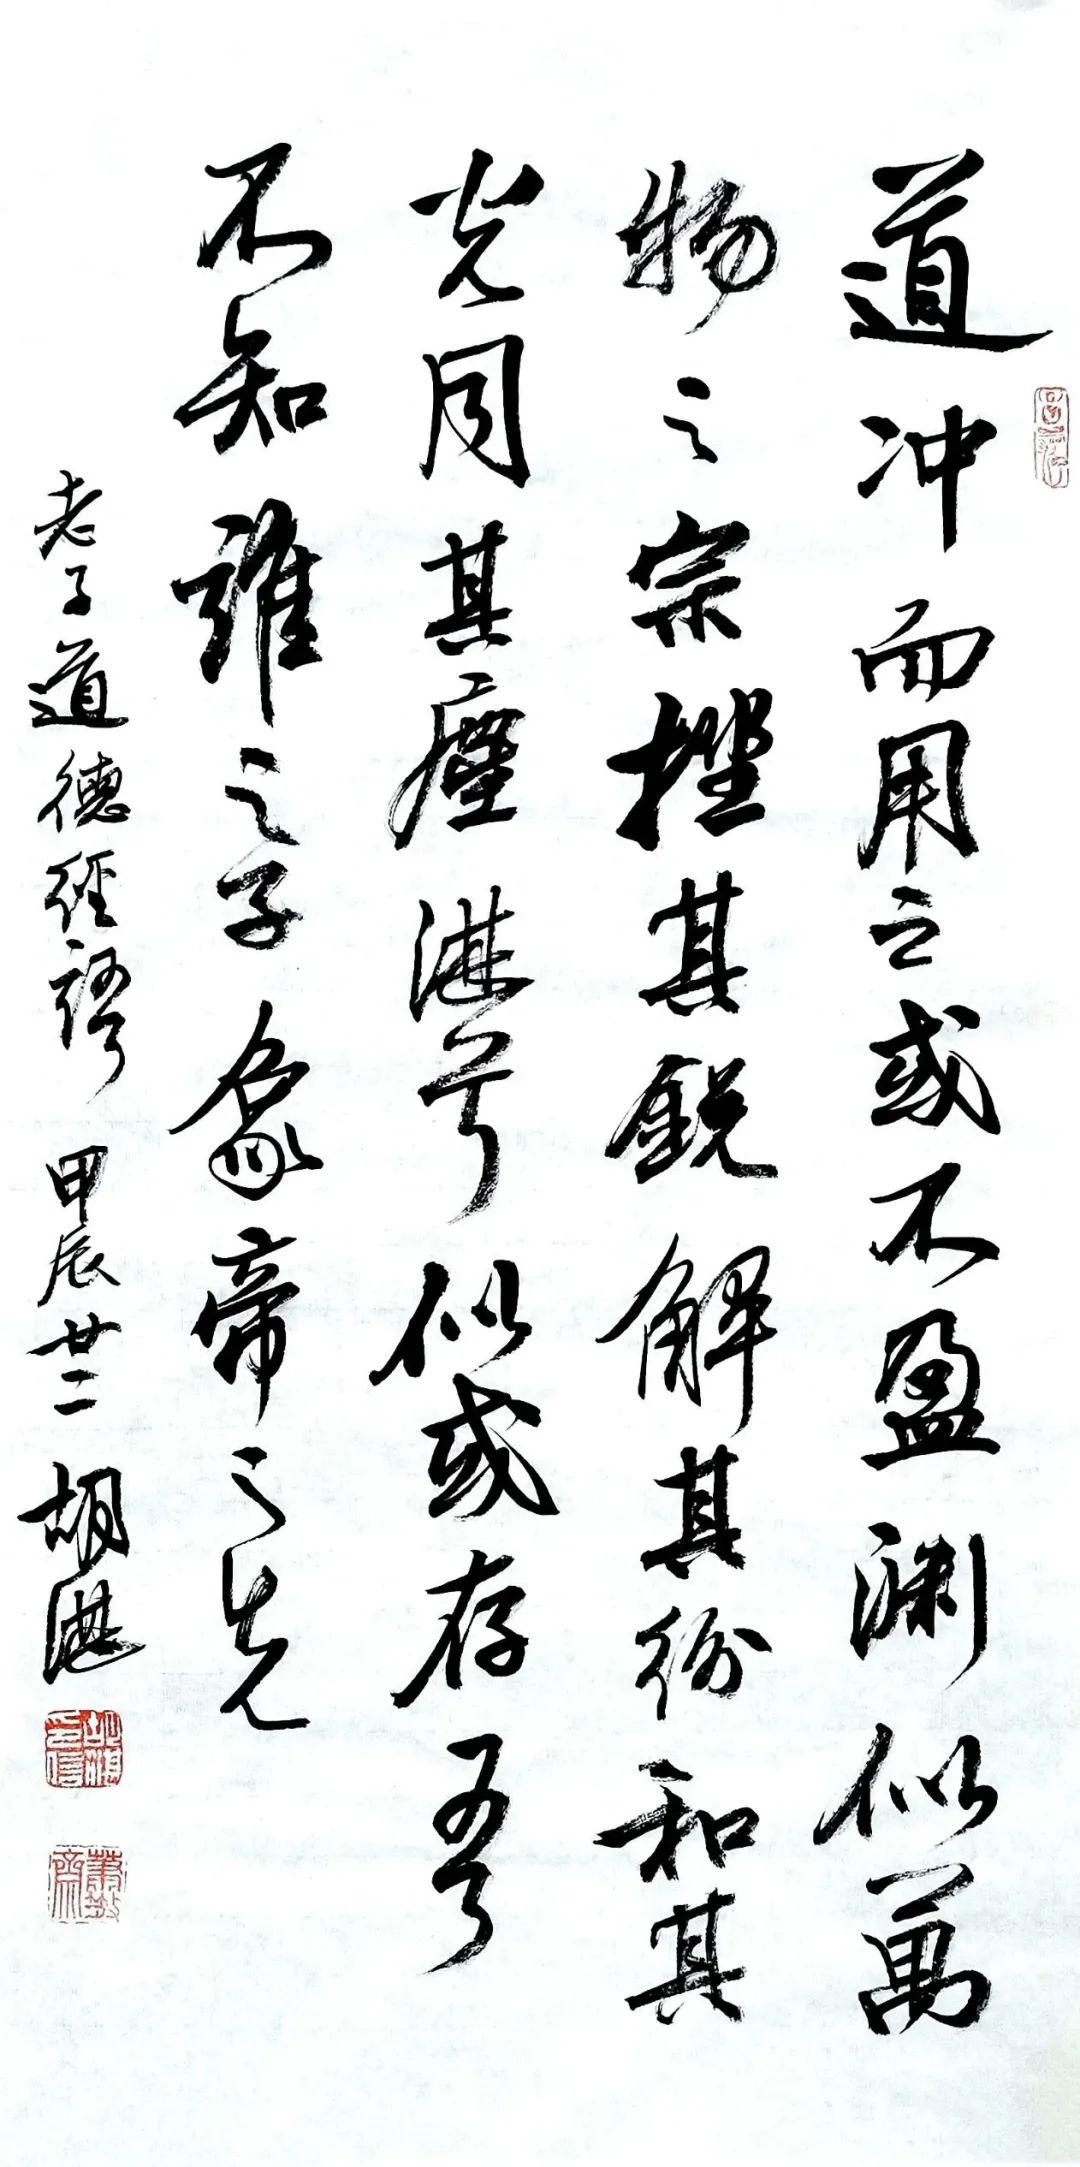 道冲而用之或不盈渊似萬
物之宗挫其鋭解其紛和其
光同其塵湛兮似或存吾
不知誰之子象帝之先
老子道德經語 甲辰廿二 胡湛